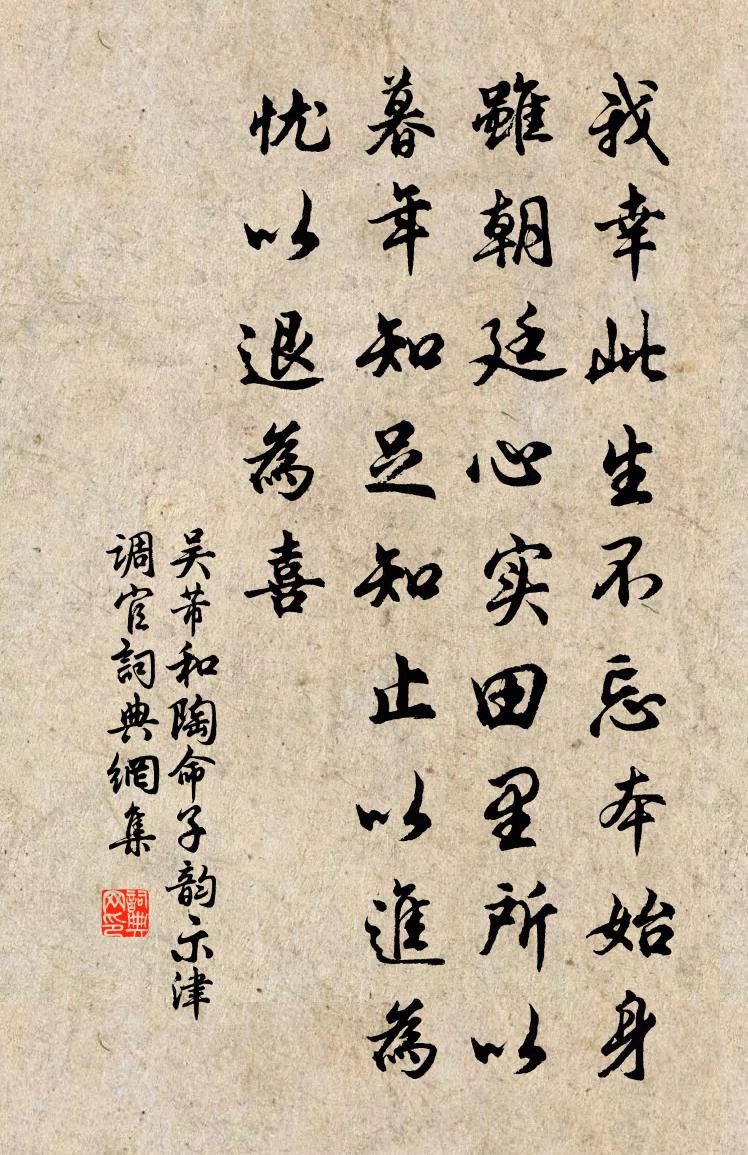 我幸此生不忘本始身
雖朝廷心实田里所以
暮年知足知止以進為
忧以退為喜
吴芾和陶命子韵示津
调官詞典網集
詞典网印